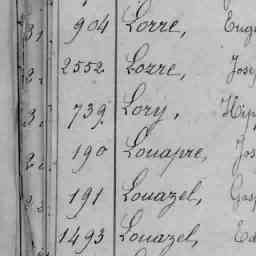 31. 904 Lorre, Eug
2552 Lozre, Jos
3. 739 Lory, Hip
2. 190 Louapre, Jos
191 Louazel, Gas
1493 Louazel, Ed